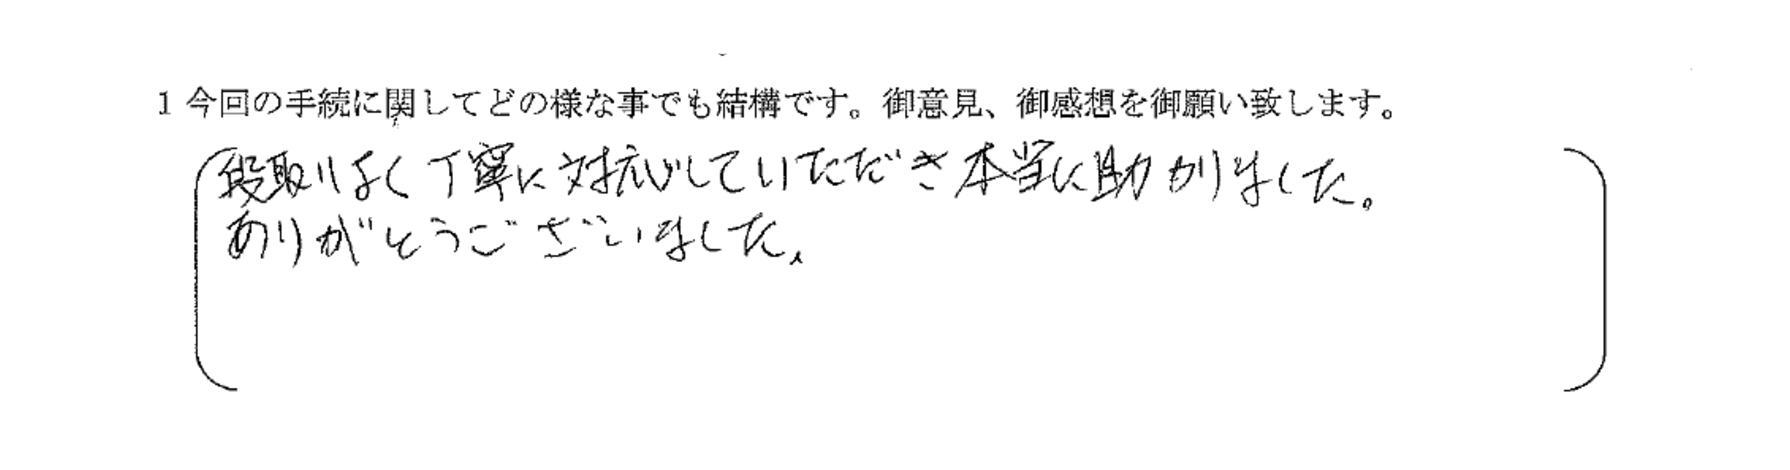 1 今回の手続に関してどの様な事でも結構です。御意見、御感想を御願い致します。
段取りよく丁寧に対応していただき本当に助かりました。
ありがとうございました。